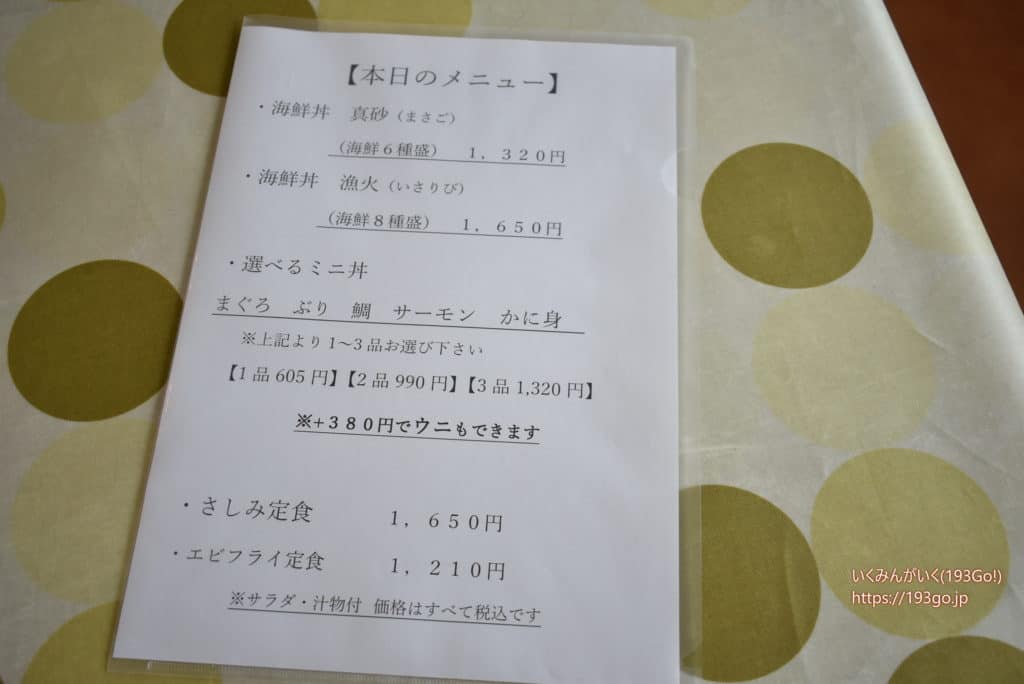 【本日のメニュー】
・海鮮丼 真砂（まさご）
（海鮮６種盛） １，３２０円
・海鮮丼 漁火（いさりび）
（海鮮８種盛） １，６５０円
・選べるミニ丼
まぐろ ぶり 鯛 サーモン かに身
※上記より 1～3 品お選び下さい
【1 品 605 円】【2 品 990 円】【3 品 1,320 円】
※+３８０円でウニもできます
・さしみ定食 １，６５０円
・エビフライ定食 １，２１０円
※サラダ・汁物付 価格はすべて税込です
いくみんがいく(193Go!)
https://193go.jp